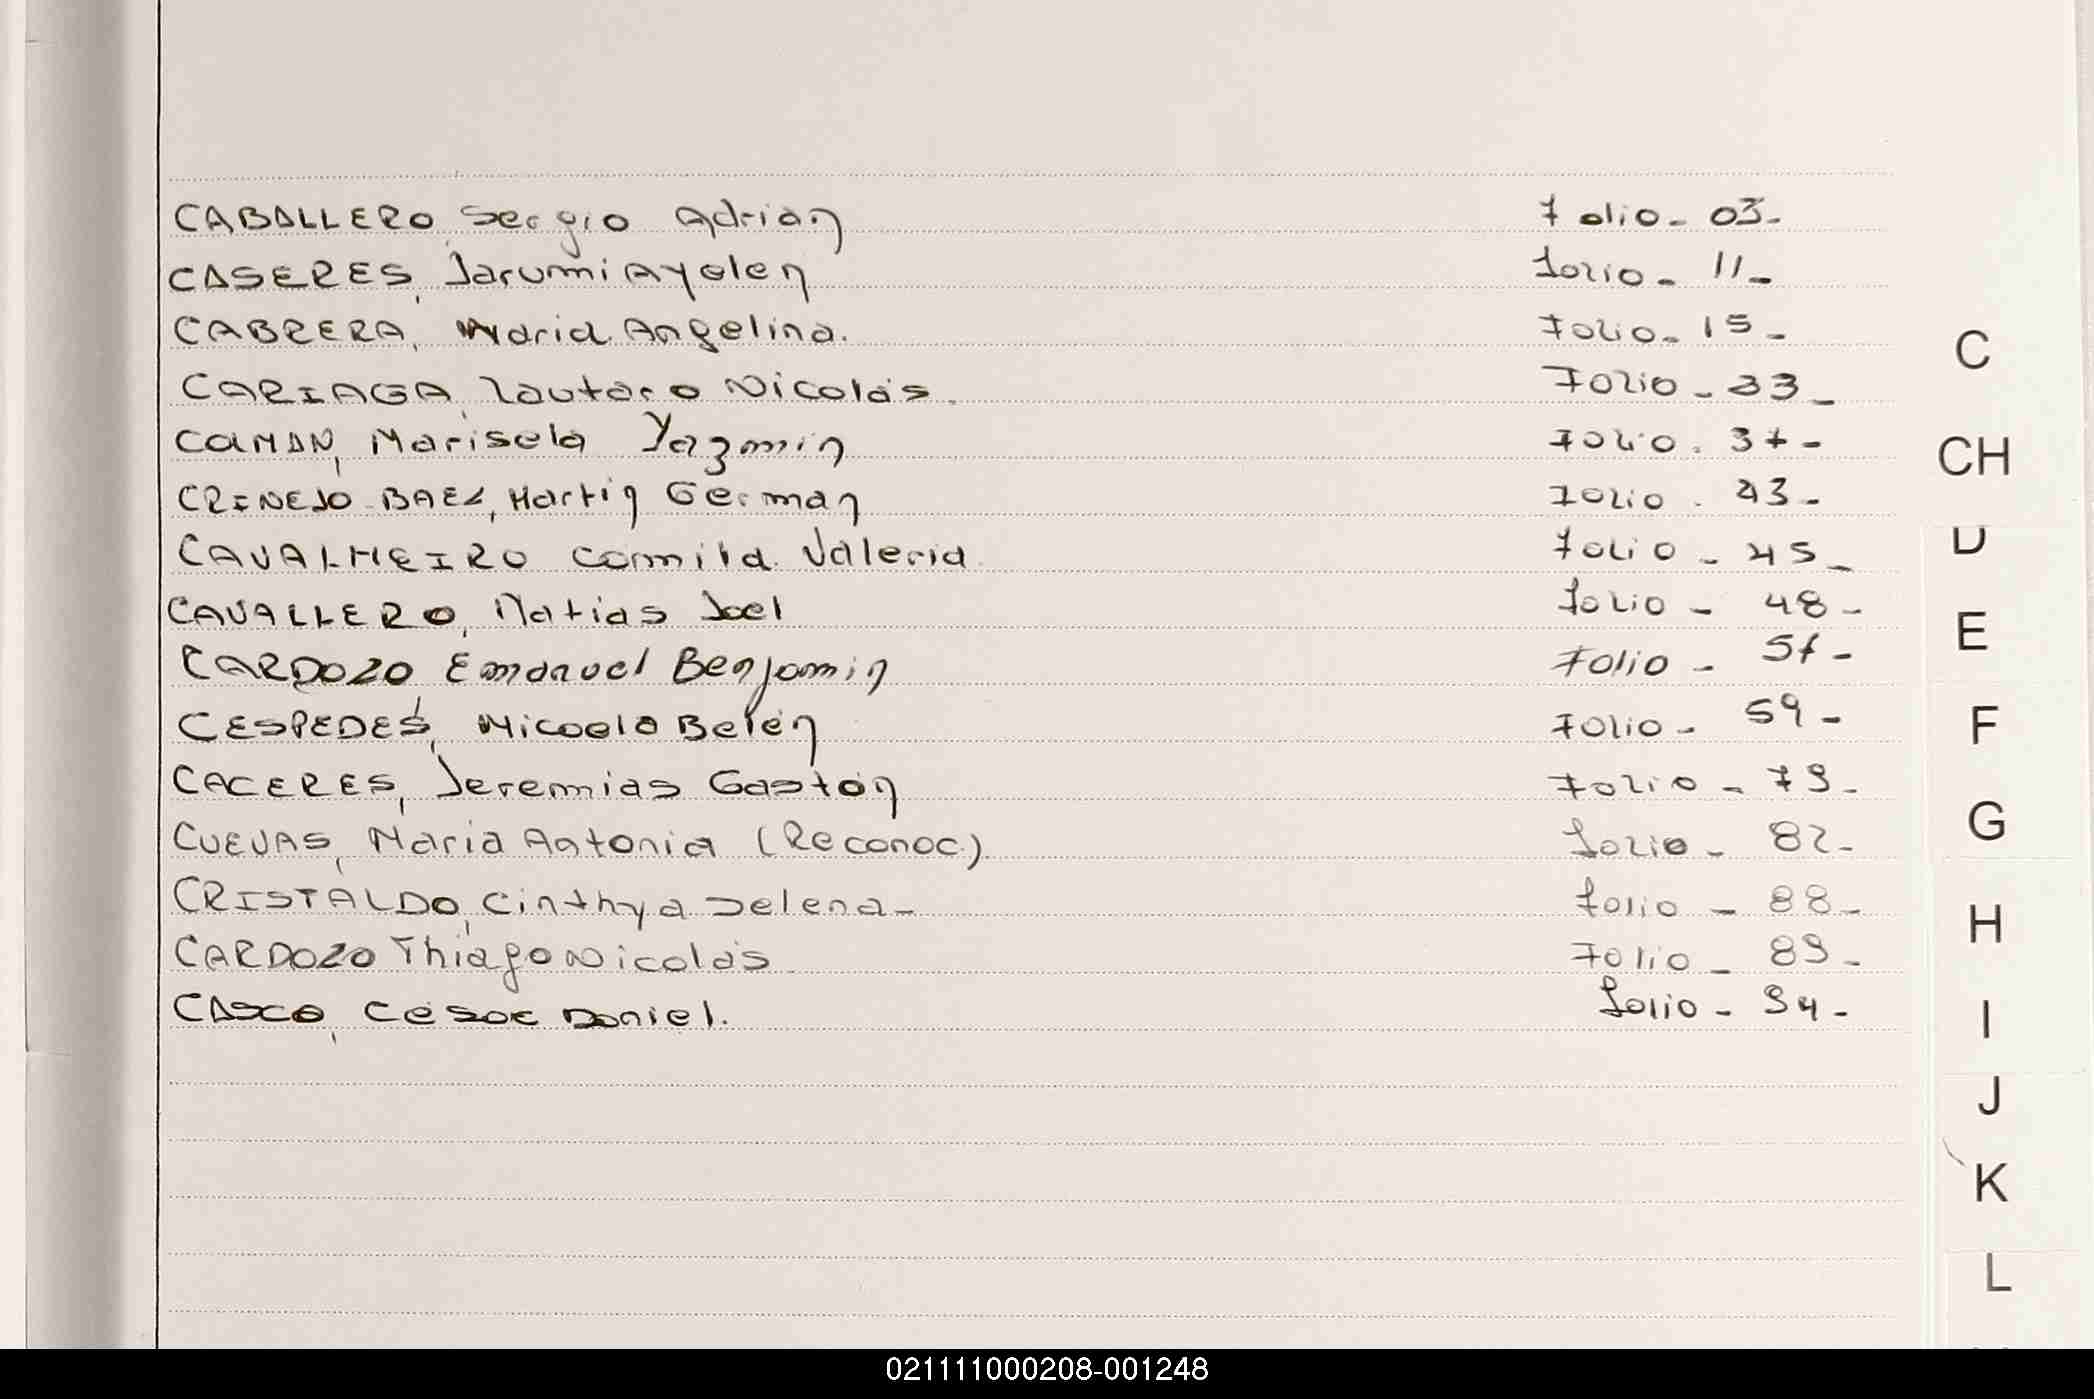 CABALLERO Sergio Adrian Folio - 03 -
CASERES, Jarumi Ayelen Folio - 11 -
CABRERA, Maria Angelina. Folio - 15 -
C
CARIAGA, Lautaro Nicolás. Folio - 33 -
CAMAN, Marisela Yazmin Folio - 37 -
CH
Martin German Folio - 43 -
CAVALHEIRO Camila Valeria Folio - 45 -
D
CAVALLERO, Matias Joel Folio - 48 -
E
CARDOZO Emanuel Benjamin Folio - 57 -
CESPEDES, Micaela Belén Folio - 59 -
F
CACERES, Jeremias Gastón Folio - 79 -
CUEVAS, Maria Antonia (Reconoc.) Folio - 82 -
G
CRISTALDO, Cinthya Selena - Folio - 88 -
H
CARDOZO Thiago Nicolás Folio - 89 -
CASCO, César Daniel. Folio - 94 -
I
J
K
L
021111000208-001248